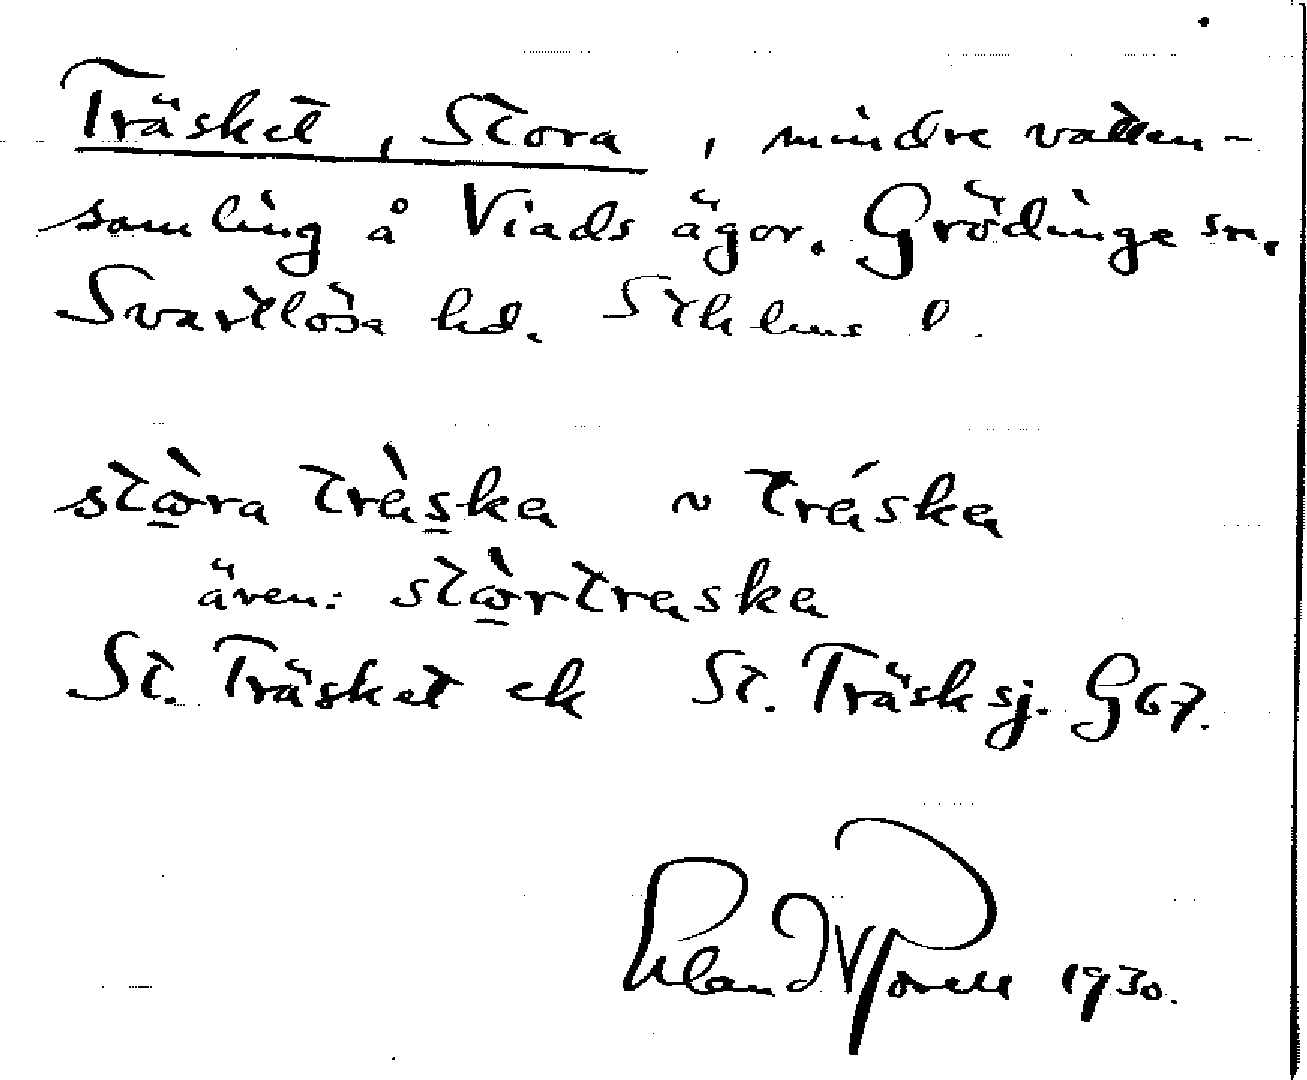 Träsket, Stora, mindre vatten-
samling å Viads ägor. Grödinge sn,
Svartlösa hd. Sthlms l.
stὼ̲ra trὰs̲ka ~ tráska
även: stὼ̲rtraska
St. Träsket ek St. Träsksj. G67.
1930.